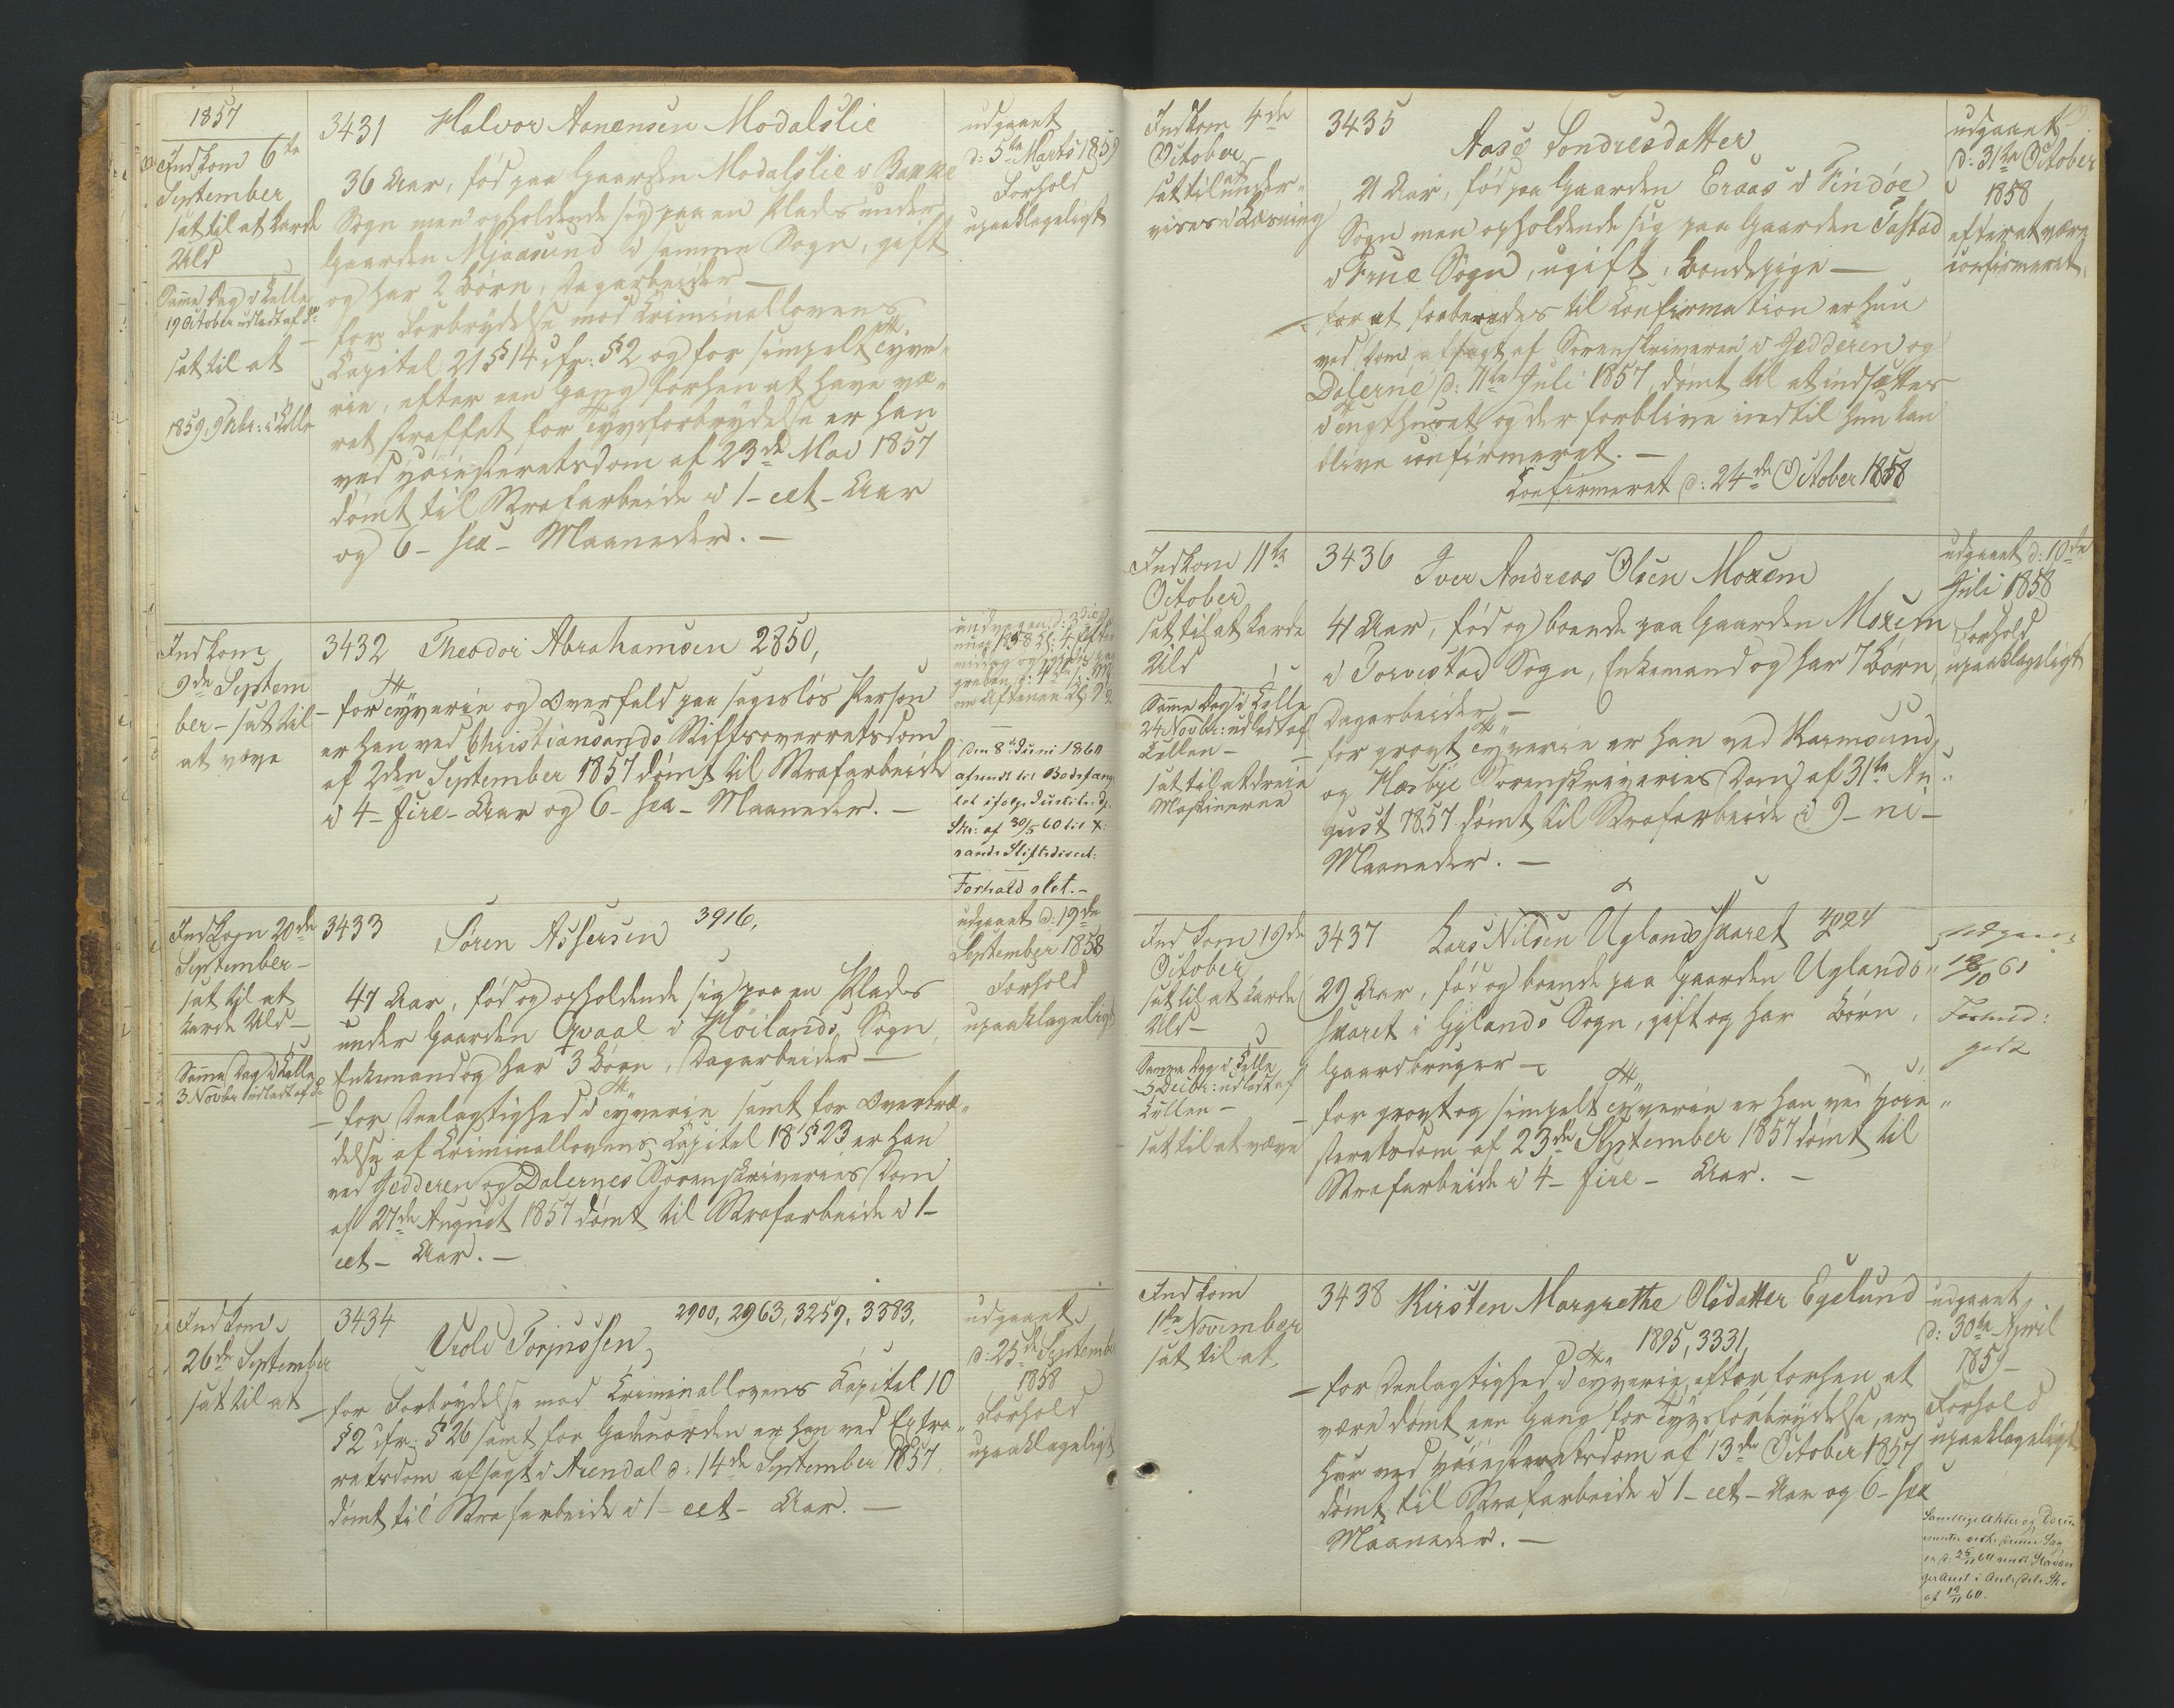 1857
Indkom 6te
September
sat til at karde
Uld
Samme Dag i Celle
19 October udladt af do
sat til at
1859, 9 Febr: i Celle
3431 Halvor Aanensen Modalslie
36 Aar, fød paa Gaarden Modalslie i Bakke
Sogn men opholdende sig paa en Plads under
Gaarden Mjaasund i samme Sogn, gift
og har 2 Børn, Dagarbeider —
for Forbrydelse mod Criminallovens
Capitel 21 § 14 cfr: § 2 og for simpelt Tyve-
rie, efter een Gang forhen at have væ-
ret straffet for Tyvsforbrydelse er han
ved Høiesteretsdom af 23de Mai 1857
dømt til Strafarbeide i 1 - eet - Aar
og 6 - sex - Maaneder. —
udgaaet
d: 5te Marts 1859
Forhold
upaaklageligt
Indkom
9de Septem
ber - sat til
at væve
3432 Theodor Abrahamsen 2850,
- for Tyverie og Overfald paa sagesløs Person
er han ved Christiansands Stiftsoverretsdom
af 2den September 1857 dømt til Strafarbeide
i 4 - fire - Aar og 6 - sex - Maaneder. —
Den 8de Juni 1860
afsendt til Bodsfæng
let ifølge Justits. dp.
Skr: af 30/5 60 til X.
sands Stiftsdirect:
Forhold slet. -
Indkom 20de
September -
sat til at
karde Uld -
Samme Dag i Celle
3 Novbr udladt af do
3433 Søren Assersen 3916,
47 Aar, fød og opholdende sig paa en Plads
under Gaarden Qvaal i Høilands Sogn,
Enkemand og har 3 Børn, Dagarbeider —
- for Deelagtighed i Tyverie samt for Overtræ-
delse af Criminallovens Capitel 18 § 23 er han
ved Jedderen og Dalernes Sorenskriveries Dom
af 27de August 1857 dømt til Strafarbeide i 1 -
eet - Aar. —
udgaaet d: 19de
September 1858
Forhold
upaaklageligt
Indkom
26de September
sat til at
3434 2900, 2963, 3259, 3383,
Torjussen
- for Forbrydelse mod Criminallovens Capitel 10
§ 2 cfr: § 26 samt for Gadeuorden er han ved Extra-
retsdom afsagt i Arendal d: 14de September 1857
dømt til Strafarbeide i 1 - eet - Aar. —
udgaaet
d: 25de September
1858
Forhold
upaaklageligt
Indkom 4de
October
sat til at under-
vises i Læsning
3435
Aase Tondresdatter
21 Aar, fød paa Gaarden Eraas i Findøe
Sogn men opholdende sig paa Gaarden Tastad
i Frue Sogn, ugift, Bondepige —
- for at forberedes til Confirmation er hun
ved Dom afsagt af Sorenskriveren i Jedderen og
Dalerne d: 11te Juli 1857, dømt til at indsættes
i Tugthuset og der forblive indtil hun kan
blive confirmeret. —
Confirmeret d: 24de October 1858
udgaaet
d: 31te October
1858
efter at være
confirmeret.
Indkom 11te
October
sat til at karde
Uld
Samme Dag i Celle
24 Novbr: udladt af
Cellen -
sat til at dreie
Maskinerne
3436 Iver Andreas Olsen Moxem
41 Aar, fød og boende paa Gaarden Moxem
i Torvestad Sogn, Enkemand og har 7 Børn,
Dagarbeider —
- for grovt Tyverie er han ved Karmsund
og Hesbye Sorenskriveries Dom af 31te Au-
gust 1857 dømt til Strafarbeide i 9 - ni -
Maaneder. —
udgaaet d: 10de
Juli 1858
Forhold
upaaklageligt
Indkom 19de
October
sat til at karde
Uld -
Samme Dag i Celle
5 Decbr: udladt af
Cellen -
sat til at væve
3437 Lars Nilsen Uglandsskaret 4024
29 Aar, fød og boende paa Gaarden Uglands-
skaret i Gylands Sogn, gift og har Børn,
Gaardbruger —
- for grovt og simpelt Tyverie er han ved Høie-
steretsdom af 23de September 1857 dømt til
Strafarbeide i 4 - fire - Aar. —
Forhold:
godt
Indkom
1ste November
sat til at
3438 Kirsten Margrethe Olsdatter Egelund
1895, 3331,
- for Deelagtighed i Tyverie, efter forhen at
være dømt een Gang for Tyvsforbrydelse, er
hun ved Høiesteretsdom af 13de October 1857
dømt til Strafarbeide i 1 - eet - Aar og 6 - sex
Maaneder. —
udgaaet
d: 30te April
1859 -
Forhold
upaaklageligt